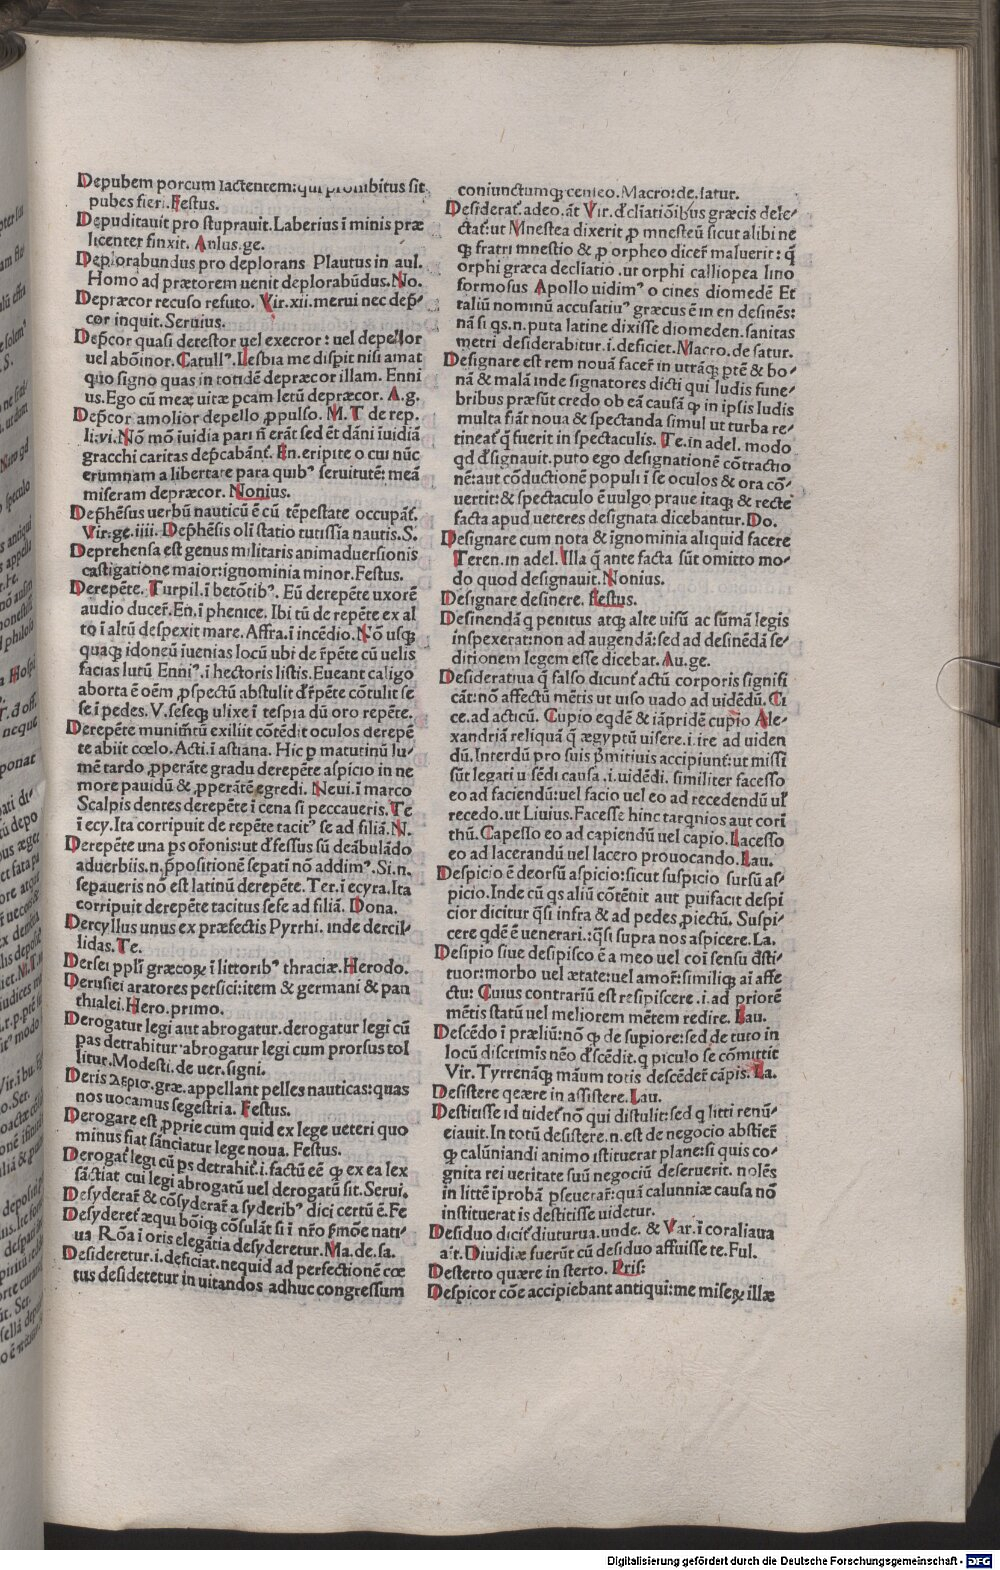 Depubem porcum lactentem:qui prohibitus sit
pubes fieri.Festus.
Depuditauit pro stuprauit.Laberius ī minis præ
licenter finxit. Anlus.ge.
Deplorabundus pro deplorans Plautus in aul.
Homo ad prætorem uenit deplorabūdus.No.
Depræcor recuso refuto. Vir.xii.merui nec dep̄
cor inquit.Seruius.
Dep̄cor quasi detestor uel execror: uel depellor
uel abōinor.Catullꝰ.Lesbia me dispit nisi amat
quo signo quas in totidē depræcor illam. Enni
us.Ego cū meæ uitæ pcam letū depræcor. A.g.
Dep̄cor amolior depello ꝓpulso. M.T de rep.
li:vi.Nō mō iuidia pari n̄ erāt sed ēt dāni iuidiā
gracchi caritas dep̄cabānt̄. En.eripite o cui nūc
erumnam a libertare para quibꝰ seruitutē: meā
miseram depræcor. Nonius.
Dep̄hēsus uerbū nauticū ē cū tēpestate occupāt̄.
Vir.ge.iiii. Dep̄hēsis oli statio tutissīa nautis.S.
Deprehensa est genus militaris animaduersionis
castigatione maior:ignominia minor.Festus.
Derepēte. Turpil.ī betōtibꝰ. Eū derepēte uxorē
audio ducer̄.En.ī phenice. Ibi tū de repēte ex al
to ī altū despexit mare. Affra.ī incēdio.Nō usꝗ
quaꝗ idoneū iuenias locū ubi de r̄pēte cū uelis
facias lutū Enniꝰ.ī hectoris listis.Eueant caligo
aborta ē oēm ꝓspectū abstulit d̄r̄pēte cōtulit se
se ī pedes. V.seseꝗ ulixe ī tespia dū oro repēte.
Derepēte munim̄tū exiliit cōtēd̄it oculos derepē
te abiit cœlo.Acti.ī astiana. Hic ꝑ matutinū lu⸗
mē tardo ꝓperāte gradu derepēte aspicio in ne
more pauidū & ꝓperātē egredi. Neui.ī marco
Scalpis dentes derepēte ī cena si peccaueris.Te
ī ecy.Ita corripuit de repēte tacitꝰ se ad filiā.N.
Derepēte una ps or̄onis:ut d̄fessus sū deābulādo
aduerbiis.n.p̄positionē sepati nō addimꝰ.Si.n.
sepaueris nō est latinū derepēte. Ter.ī ecyra.Ita
corripuit derepēte tacitus sese ad filiā. Dona.
Dercyllus unus ex præfectis Pyrrhi. inde dercil⸗
lidas.Te.
Dersei ppłi græcoꝝ ī littoribꝰ thraciæ.Herodo.
Derusiei aratores persici:item & germani & pan
thialei.Hero.primo.
Derogatur legi aut abrogatur.derogatur legi cū
pas detrahitur abrogatur legi cum prorsus tol
litur.Modesti.de uer.signi.
Deris λερισ.græ.appellant pelles nauticas:quas
nos uocamus segestria. Festus.
Derogare est ꝓprie cum quid ex lege ueteri quo
minus fiat sanciatur lege noua. Festus.
Derogat̄ legi cū ps detrahit̄.i.factū eē ꝙ ex ea lex
sāctiat cui legi abrogatū uel derogatū sit.Serui.
Desyderar̄ & cōsyderar̄ a syderibꝰ dici certū ē.Fe
Desyderet̄ æqui bōiꝗ cōsulāt̄ si ī nr̄o p̄mōe nati⸗
ua Rōa ī oris elegātia desyderetur.Ma.de.sa.
Desideretur.i.deficiat.nequid ad perfectionē cœ
tus desidetetur in uitandos adhuc congressum
coniunctumꝗ censeo.Macro:de.satur.
Desiderat̄.adeo.āt Vir.d̄cliatiōibus græcis dele⸗
ctat̄:ut Mnestea dixerit ꝓ mnesteū sicut alibi ne
ꝗ fratri mnestio & ꝓ orpheo dicer̄ maluerit: q̄
orphi græca decliatio.ut orphi calliopea lino
formosus Apollo uidimꝰ o cines diomedē Et
taliū nominū accusatiuꝰ græcus ē in en desinēs:
nā si qs.n.puta latine dixisse diomeden.sanitas
metri desiderabitur.i.deficiet.Macro.de satur.
Designare est rem nouā facer̄ in utrāꝗ ptē & bo⸗
nā & malā inde signatores dicti qui ludis fune⸗
bribus præsūt credo ob eā causā ꝙ in ipsis ludis
multa fiāt noua & spectanda simul ut turba re⸗
tineat̄ q̄ fuerit in spectaculis. Te.in adel. modo
qd d̄signauit.puto ego designationē cōtractio
nē:aut cōductionē populi ī se oculos & ora cō⸗
uertit:& spectaculo ē uulgo praue itaꝗ & recte
facta apud ueteres designata dicebantur.Do.
Designare cum nota & ignominia aliquid facere
Teren.in adel.Illa q̄ ante facta sūt omitto mo⸗
do quod designauit.Nonius.
Designare desinere. Festus.
Desinendā q penitus atꝗ alte uisū ac sūmā legis
inspexerat:non ad augendā:sed ad desinēdā se⸗
ditionem legem esse dicebat. Au.ge.
Desideratiua q̄ falso dicunt̄ actū corporis signifi
cāt:nō affectū mētis ut uiso uado ad uidēdū. Ci
ce.ad acticū. Cupio eqdē & iāpridē cupio Ale⸗
xandriā reliquā q̄ ægyptū uisere.i.ire ad uiden
dū.Interdū pro suis p̄mitiuis accipiunt̄:ut missi
sūt legati uisēdi causa .i.uidēdi. similiter facesso
eo ad faciendū:uel facio uel eo ad recedendū uł
recedo.ut Liuius.Facesse hinc tarqnios aut cori
thū. Capesso eo ad capiendū uel capio. Lacesso
eo ad lacerandū uel lacero prouocando. Lau.
Despicio ē deorsū aspicio:sicut suspicio sursū as⸗
picio.Inde cū qs aliū cōtēnit aut puifacit despi
cior dicitur q̄si infra & ad pedes ꝓiectū. Suspi⸗
cere qdē ē uenerari.:q̄si supra nos aspicere.La.
Desipio siue desipisco ē a meo uel coī sensu d̄sti⸗
tuor:morbo uel ætate:uel amor̄:similiꝗ aī affe
ctu: Cuius contrariū est resipiscere .i.ad priorē
mētis statū uel meliorem mētem redire. Lau.
Descēdo ī præliū:nō ꝙ de supiore:sed de tuto in
locū discrimis nēo d̄scēdit.q piculo se cōmittit
Vir. Tyrrenāꝗ māum totis descēder̄ cāpis. La.
Desistere qeære in assistere.Lau.
Destitisse id uidet̄ nō qui distulit:sed q litti renū⸗
ciauit.In totū desistere.n.est de negocio abstier̄
ꝙ calūniandi animo istituerat plane:si quis co⸗
gnita rei ueritate suū negociū deseruerit. nolēs
in littē iprobā pseuerar̄:quā calunniæ causa nō
instituerat is destitisse uidetur.
Desiduo dicit̄ diuturua.unde. & Var.ī coraliaua
a't. Diuidiæ fuerūt cū desiduo affuisse te.Ful.
Desterto quære in sterto. Pris:
Despicor cōe accipiebant antiqui:me miseꝝ illæ
Digitalisierung gefördert durch die Deutsche Forschungsgemeinschaft - DFG